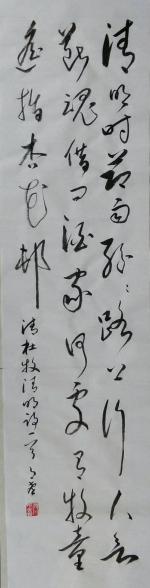 清明时节雨纷纷路上行人欲
断魂借问酒家何处有牧童
遥指杏花邨
杜牧清明诗一首